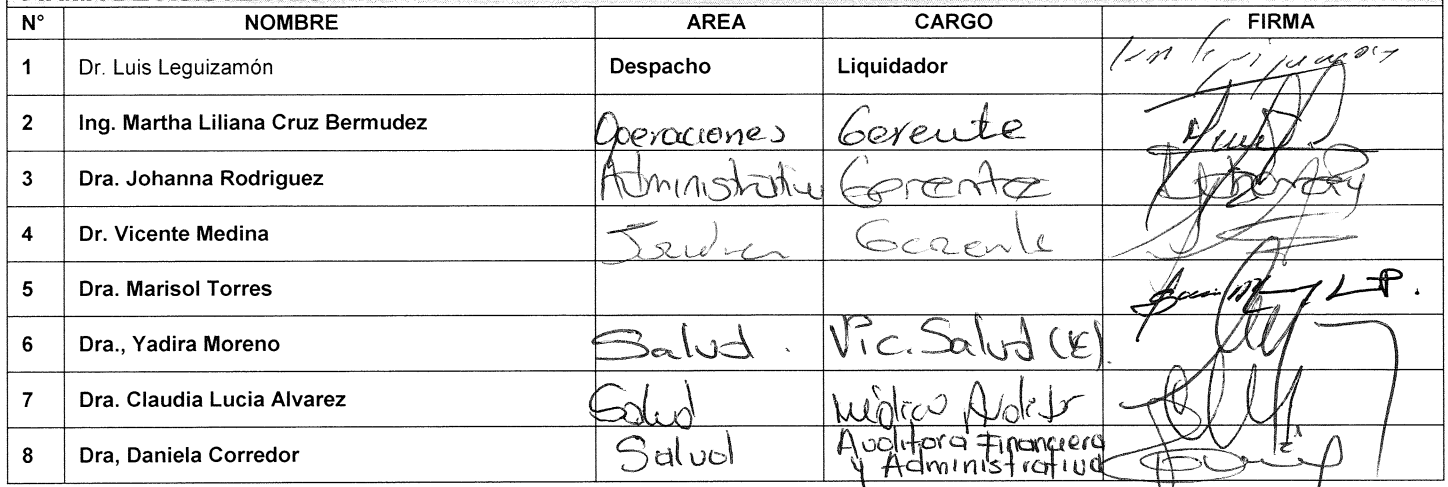 N° NOMBRE AREA CARGO FIRMA
1 Dr. Luis Leguizamón Despacho Liquidador
2 Ing. Martha Liliana Cruz Bermudez Operaciones Gerente
3 Dra. Johanna Rodriguez Administrativa Gerente
4 Dr. Vicente Medina Gerente
5 Dra. Marisol Torres
6 Dra., Yadira Moreno Salud. Vic. Salud (E).
7 Dra. Claudia Lucia Alvarez Salud Médico Auditor
8 Dra, Daniela Corredor Salud Auditora Financiera
y Administrativa